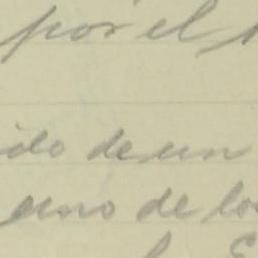 por el
de un
uno de los